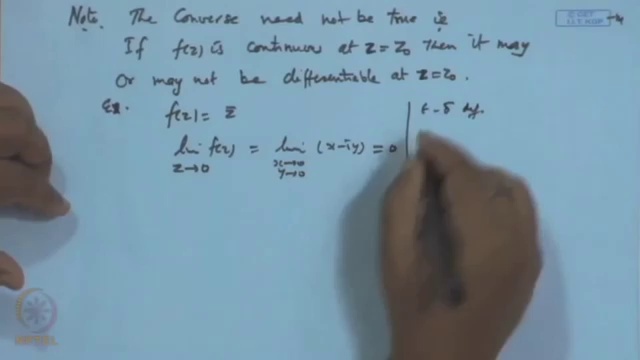 Note. The Converse need not be true ie
If f(z) is continuous at z=z₀ Then it may
Or may not be differentiable at z=z₀.
Ex. f(z) = z̄
lim f(z) = lim (x-iy) = 0
z→0 x→0
y→0
ε-δ def.
© CET
I.I.T. KGP
NPTEL